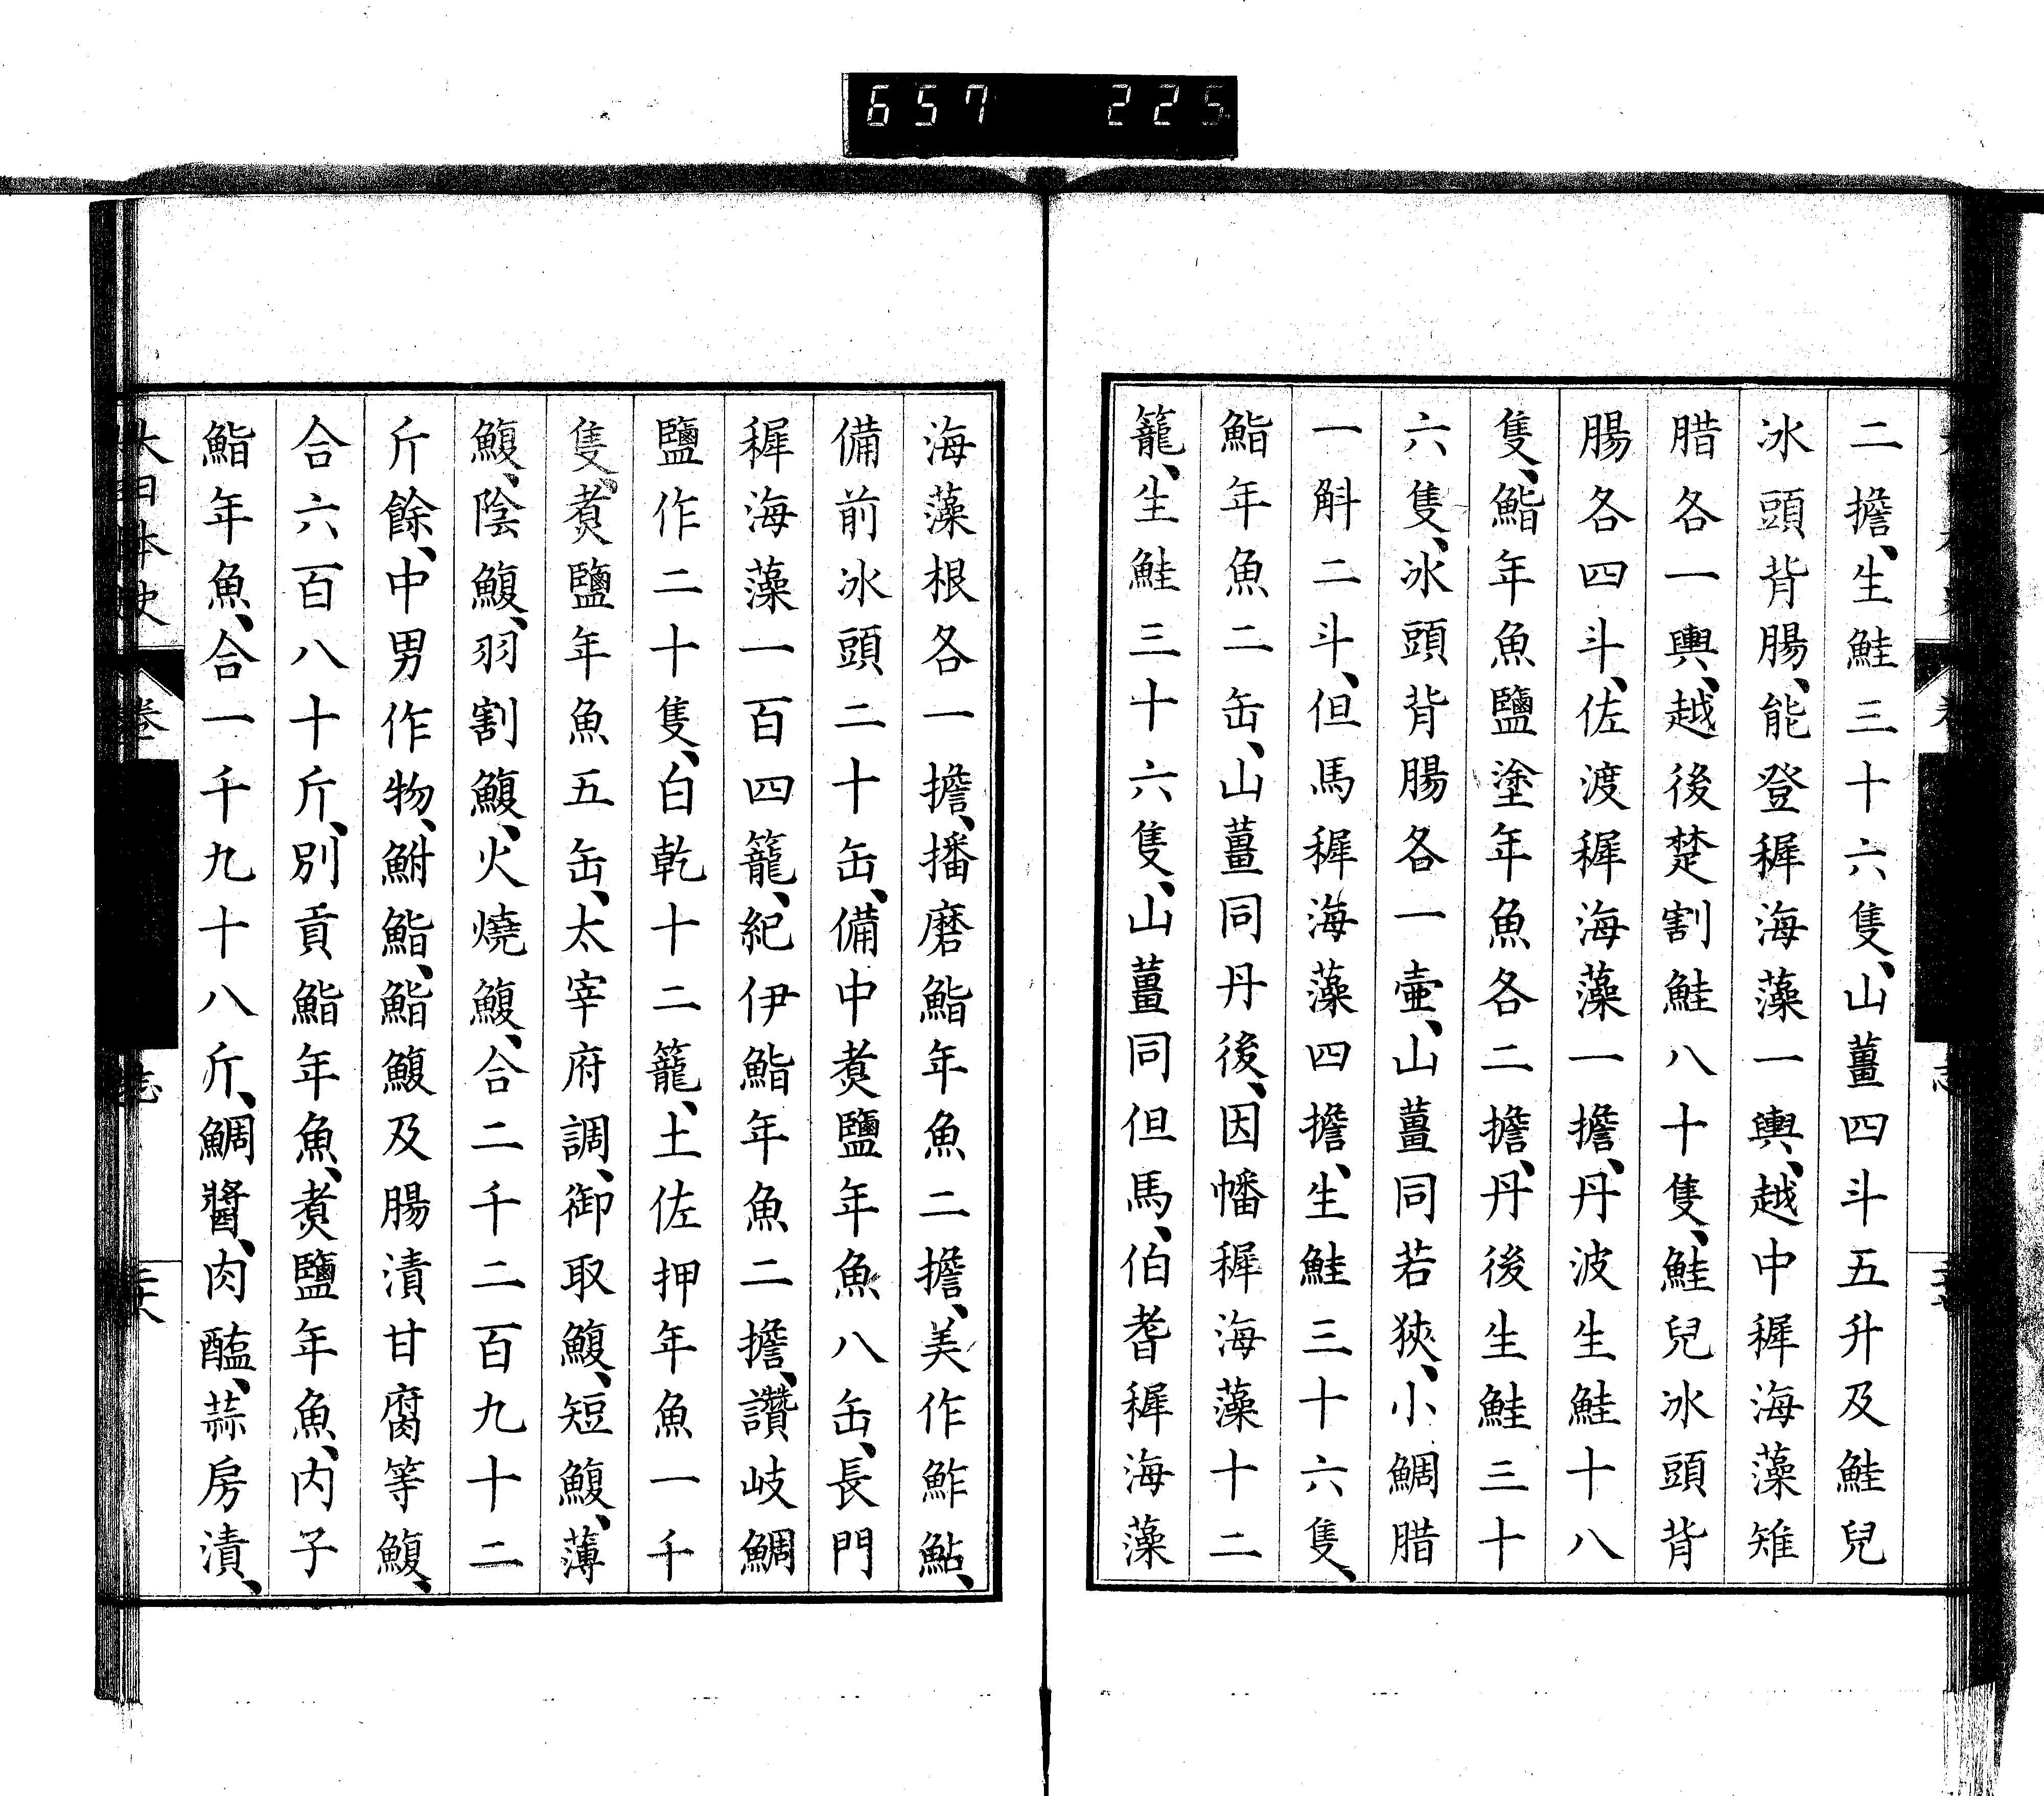 657 225
二擔、生鮭三十六隻、山薑四斗五升及鮭兒
冰頭背腸、能登穉海藻一輿、越中穉海藻雉
腊各一輿、越後楚割鮭八十隻、鮭兒冰頭背
腸各四斗、佐渡穉海藻一擔、丹波生鮭十八
隻、鮨年魚鹽塗年魚各二擔、丹後生鮭三十
六隻、冰頭背腸各一壷、山薑同若狹、小鯛腊
一斛二斗、但馬穉海藻四擔、生鮭三十六隻、
鮨年魚二缶、山薑同丹後、因幡穉海藻十二
籠、生鮭三十六隻、山薑同但馬、伯耆穉海藻
海藻根各一擔、播磨鮨年魚二擔、美作鮓鮎、
備前冰頭二十缶、備中煑鹽年魚八缶、長門
穉海藻一百四籠、紀伊鮨年魚二擔、讚岐鯛
鹽作二十隻、白乾十二籠、土佐押年魚一千
隻、煑鹽年魚五缶、太宰府調、御取鰒、短鰒、薄
鰒、陰鰒、羽割鰒、火燒鰒、合二千二百九十二
斤餘、中男作物、鮒鮨、鮨鰒及腸漬甘腐等鰒、
合六百八十斤、別貢鮨年魚、煑鹽年魚、内子
鮨年魚、合一千九十八斤、鯛醬、肉醢、蒜房漬、
大日本史 卷 志 三十八